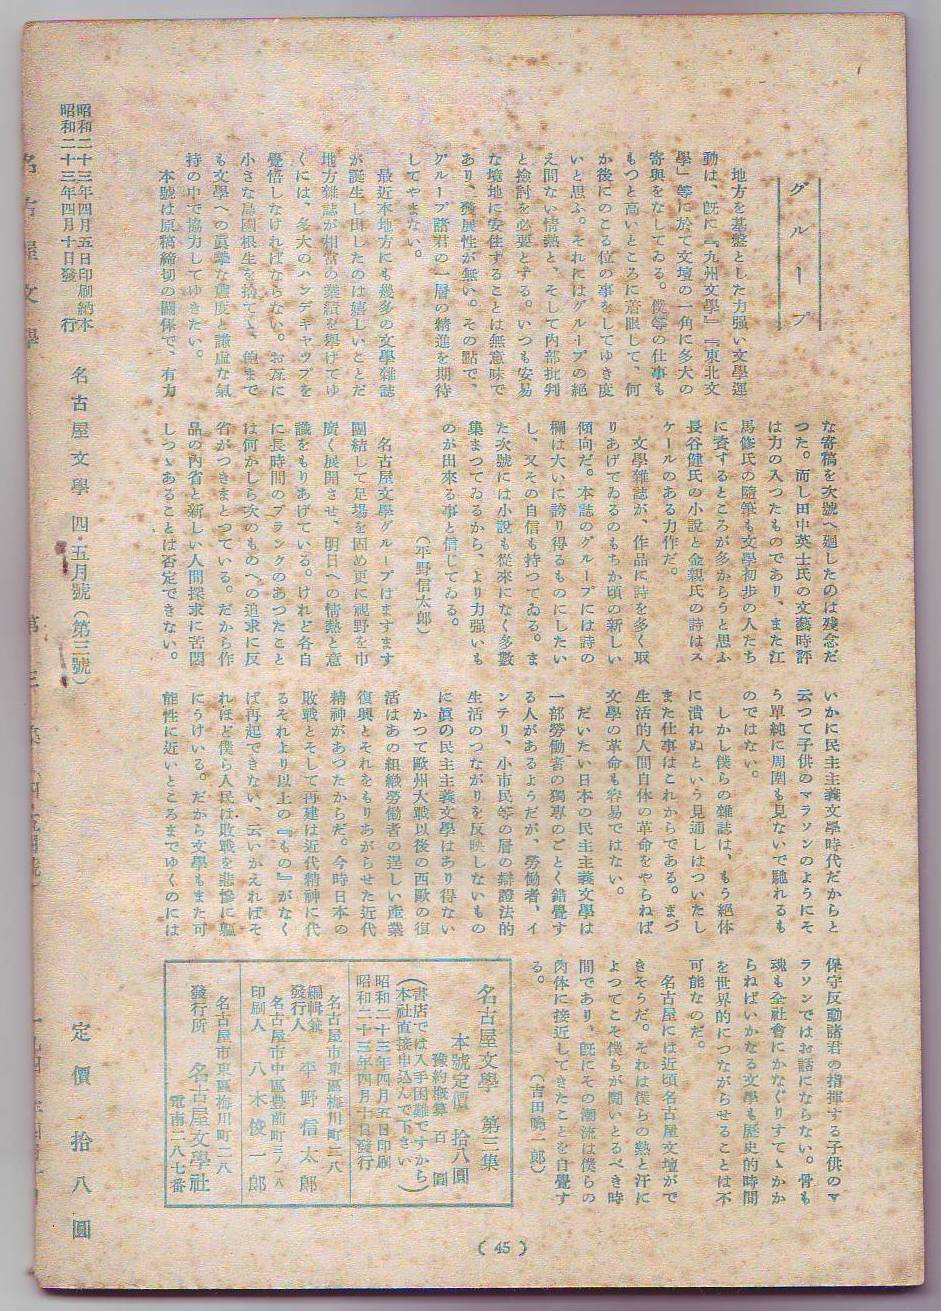 グループ
地方を基盤とした力强い文學運
動は、既に『九州文學』『東北文
學』等に於て文壇の一角に多大の
寄與をなしてゐる。僕等の仕事も
もつと高いところに着眼して、何
か後にのこる位の事をしてゆき度
いと思ふ。それにはグループの絕
え間ない情熱と、そして内部批判
と檢討を必要とする。いつも安易
な境地に安住することは無意味で
あり、發展性が無い。その點で、
グループ諸君の一層の精進を期待
してやまない。
最近本地方にも幾多の文學雜誌
が誕生し出したのは嬉しいことだ
地方雜誌が相當の業績を擧げてゆ
くには、多大のハンデキャップを
覺悟しなければならない。お互に
小さな島國根生を捨てゝ、飽まで
も文學への眞摯な態度と謙虛な氣
持の中で協力してゆきたい。
本號は原稿締切の關係で、有力
な寄稿を次號へ廻したのは殘念だ
つた。而し田中英士氏の文藝時評
は力の入つたものであり、また江
馬修氏の隨筆も文學初步の人たち
に資するところが多からうと思ふ
長谷健氏の小說と金親氏の詩はス
ケールのある力作だ。
文學雜誌が、作品に詩を多く取
りあげてゐるのもちか頃の新しい
傾向だ。本誌のグループには詩の
欄は大いに誇り得るものにしたい
し、又その自信も持つてゐる。ま
た次號には小說も從來になく多數
集まつてゐるから、より力强いも
のが出來る事と信じてゐる。
（平野信太郎）
名古屋文學グループはますます
團結して足場を固め更に視野を巾
廣く展開させ、明日への情熱と意
識をもりあげている。けれど各自
に長時間のブランクのあつたこと
は何かしら次のものへの追求に反
省がつきまとつている。だから作
品の内省と新しい人間探求に苦悶
しつゝあることは否定できない。
いかに民主主義文學時代だからと
云つて子供のマラソンのようにそ
う單純に周圍も見ないで馳れるも
のではない。
しかし僕らの雜誌は、もう絕体
に潰れぬという見通しはついたし
また仕事はこれからである。まづ
生活的人間自体の革命をやらねば
文學の革命も容易ではない。
だいたい日本の民主主義文學は
一部勞働者の獨專のごとく錯覺す
る人があるようだが、勞働者、イ
ンテリ、小市民等の層の辯證法的
生活のつながりを反映しないもの
に眞の民主主義文學はあり得ない
かつて歐州大戰以後の西歐の復
活はあの組織勞働者の逞しい產業
復興とそれをもりあがらせた近代
精神があつたからだ。今時日本の
敗戰とそして再建は近代精神に代
るそれより以上の『もの』がなく
ば再起できない、云いかえればそ
れほど僕ら人民は敗戰を悲慘に軀
にうけいる。だから文學もまた可
能性に近いところまでゆくのには
保守反動諸君の指揮する子供のマ
ラソンではお話にならない。骨も
魂も全社會にかなぐりすてゝかか
らねばいかなる文學も歷史的時間
を世界的につながらせることは不
可能なのだ。
名古屋には近頃名古屋文壇がで
きそうだ。それは僕らの熱と汗に
よつてこそ僕らが鬪いとるべき時
間であり、既にその潮流は僕らの
肉体に接近してきたことを自覺す
る。
（吉田曉一郎）
名古屋文學　第三集
本號定價　拾八圓
豫約槪算　百　圓
（書店では入手困難ですから
本社直接申込んで下さい）
昭和二十三年四月五日印刷
昭和二十三年四月十日發行
名古屋市東區梅川町二八
編輯兼
發行人　平野信太郎
名古屋市中區豊前町三ノ一八
印刷人　八木俊一郎
名古屋市東區梅川町二八
發行所　名古屋文學社
電南二八七番
（45）
昭和二十三年四月五日印刷納本
昭和二十三年四月十日發　行
名古屋文學　四・五月號（第三號）
定價拾八圓
名古屋文學